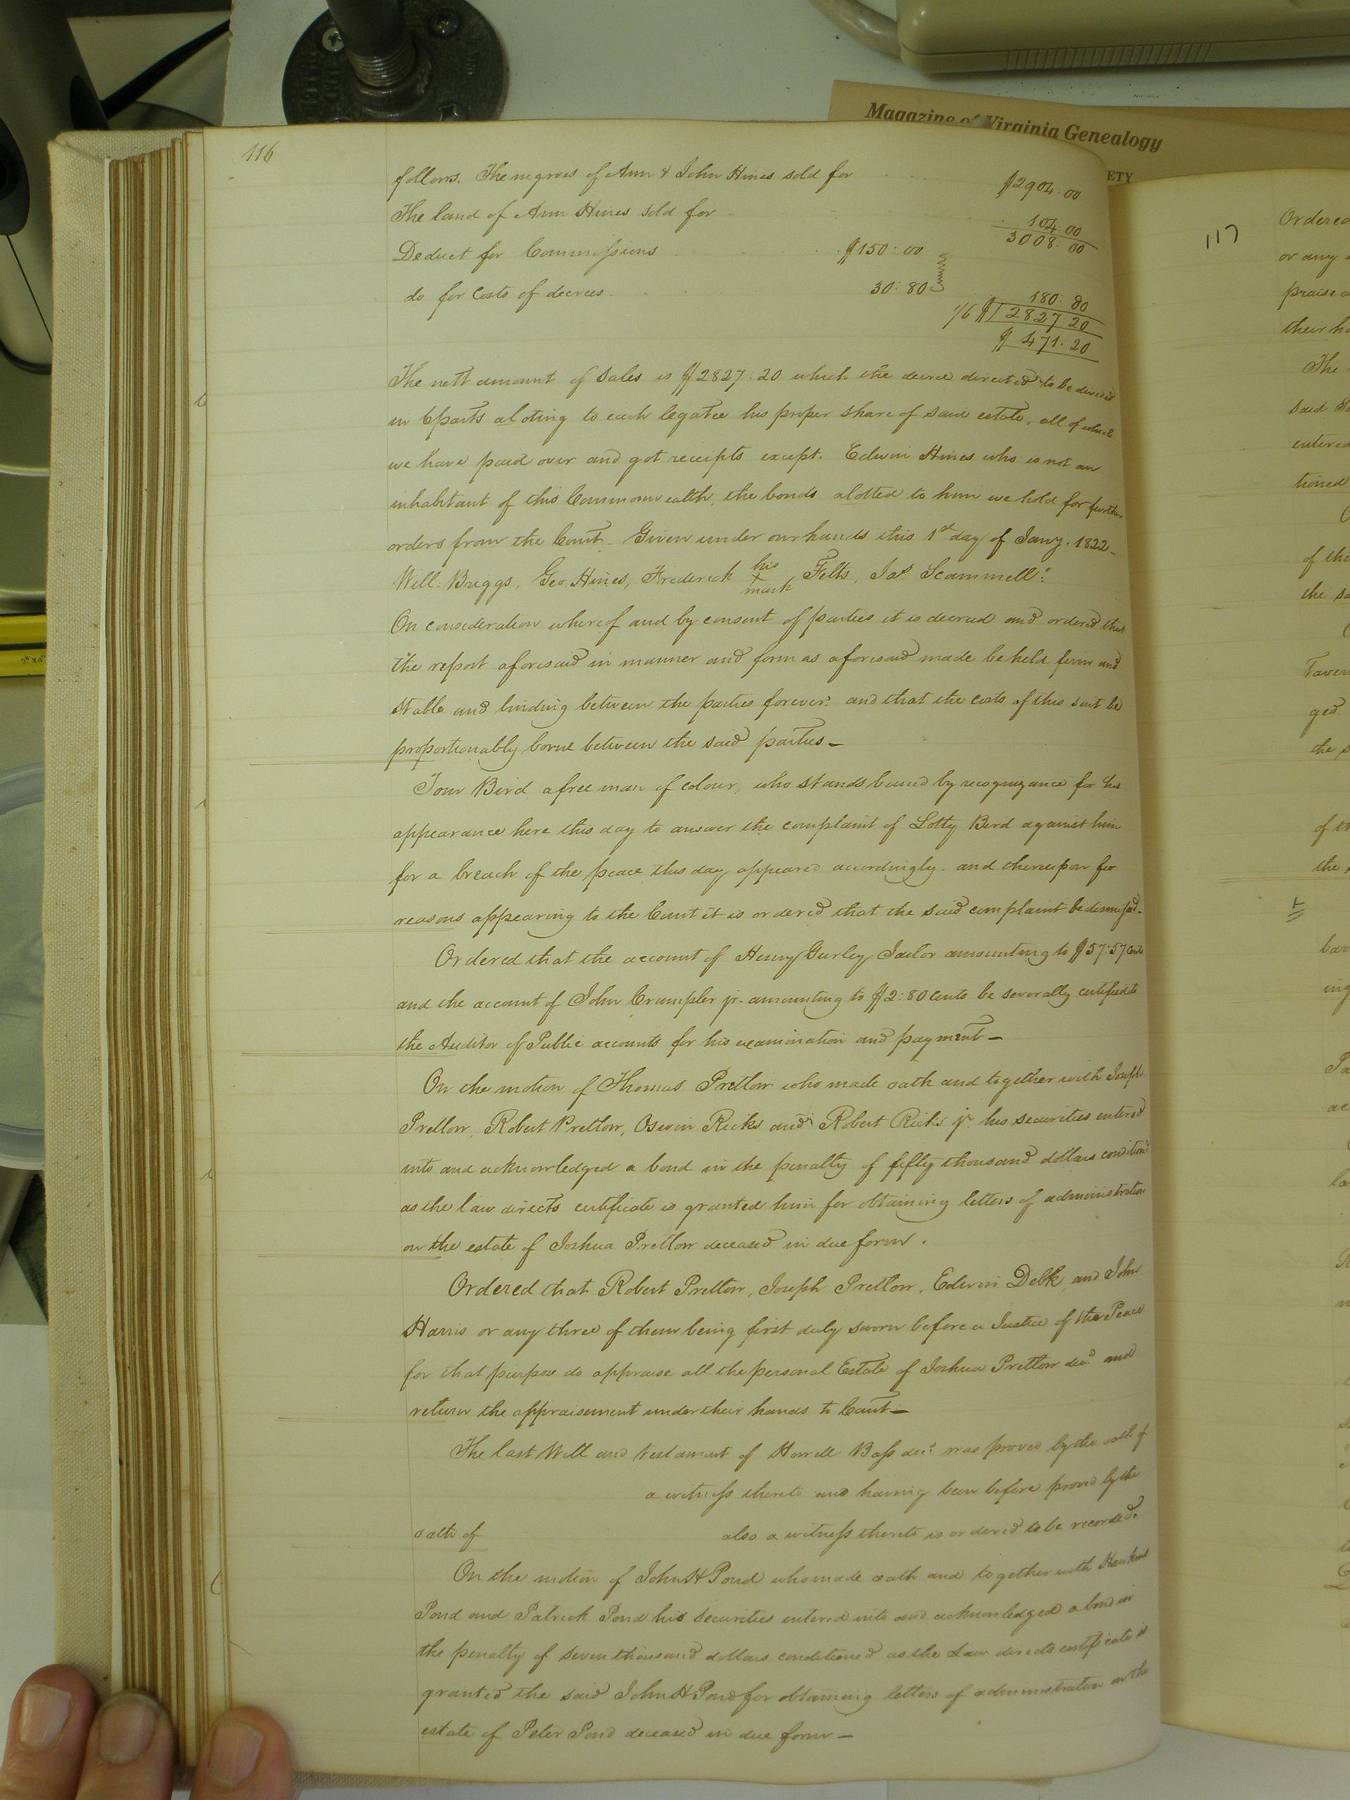 Magazine of Virginia Genealogy
ETY
116
follows. The negroes of Ann & John Hines sold for $2904.00
The land of Ann Hines sold for 104.00
3008.00
Deduct for Commissions $150.00
do for Costs of decrees 30.80
180.80
1/6 $ 2827.20
$ 471.20
The nett amount of sales is $2827.20 which the decree directed to be devided
in 6 parts aloting to each legatee his proper share of said estate, all of which
we have paid over and got receipts except. Edwin Hines who is not an
inhabitant of this Commonwealth, the bonds alotted to him we hold for further
orders from the Court. Given under our hands this 1st day of Jany. 1822
Will. Briggs, Geo. Hines, Frederick his + mark Felts, Jas. Scammell.
On consideration whereof and by consent of parties it is decreed and ordered that
the report aforesaid in manner and form as aforesaid made be held firm and
stable and binding between the parties forever. and that the costs of this suit be
proportionably borne between the said parties—
Tom Bird a free man of colour, who stands bound by recognizance for his
appearance here this day to answer the complaint of Lotty Bird against him
for a breach of the peace this day appeared accordingly. and thereupon for
reasons appearing to the Court it is ordered that the said complaint be dismissed.
Ordered that the account of Henry Gurley Jailor amounting to $57.57 Cents
and the account of John Crumpler jr. amounting to $2:80 Cents be severally certified to
the Auditor of Public accounts for his examination and payment—
On the motion of Thomas Pretlow who made oath and together with Joseph
Pretlow, Robert Pretlow, Oswin Ricks and Robert Ricks jr. his securities entered
into and acknowledged a bond in the penalty of fifty thousand dollars conditioned
as the law directs certificate is granted him for obtaining letters of administration
on the estate of Joshua Pretlow deceased in due form.
Ordered that Robert Pretlow, Joseph Pretlow, Edwin Delk and John
Harris or any three of them being first duly sworn before a Justice of the Peace
for that purpose do appraise all the personal Estate of Joshua Pretlow decd. and
return the appraisement under their hands to Court—
The last Will and testament of Howell Bass decd. was proved by the oath of
a witness thereto and having been before proved by the
oath of also a witness thereto is ordered to be recorded.
On the motion of John H Pond who made oath and together with
Pond and Patrick Pond his securities entered into and acknowledged a bond in
the penalty of seven thousand dollars conditioned as the Law directs certificate is
granted the said John H Pond for obtaining letters of administration on the
estate of Peter Pond deceased in due form—
117
Ordered
or any
praise
their ha
The
said
entered
tioned
of the
the sa
Taver
ged
the s
of th
the